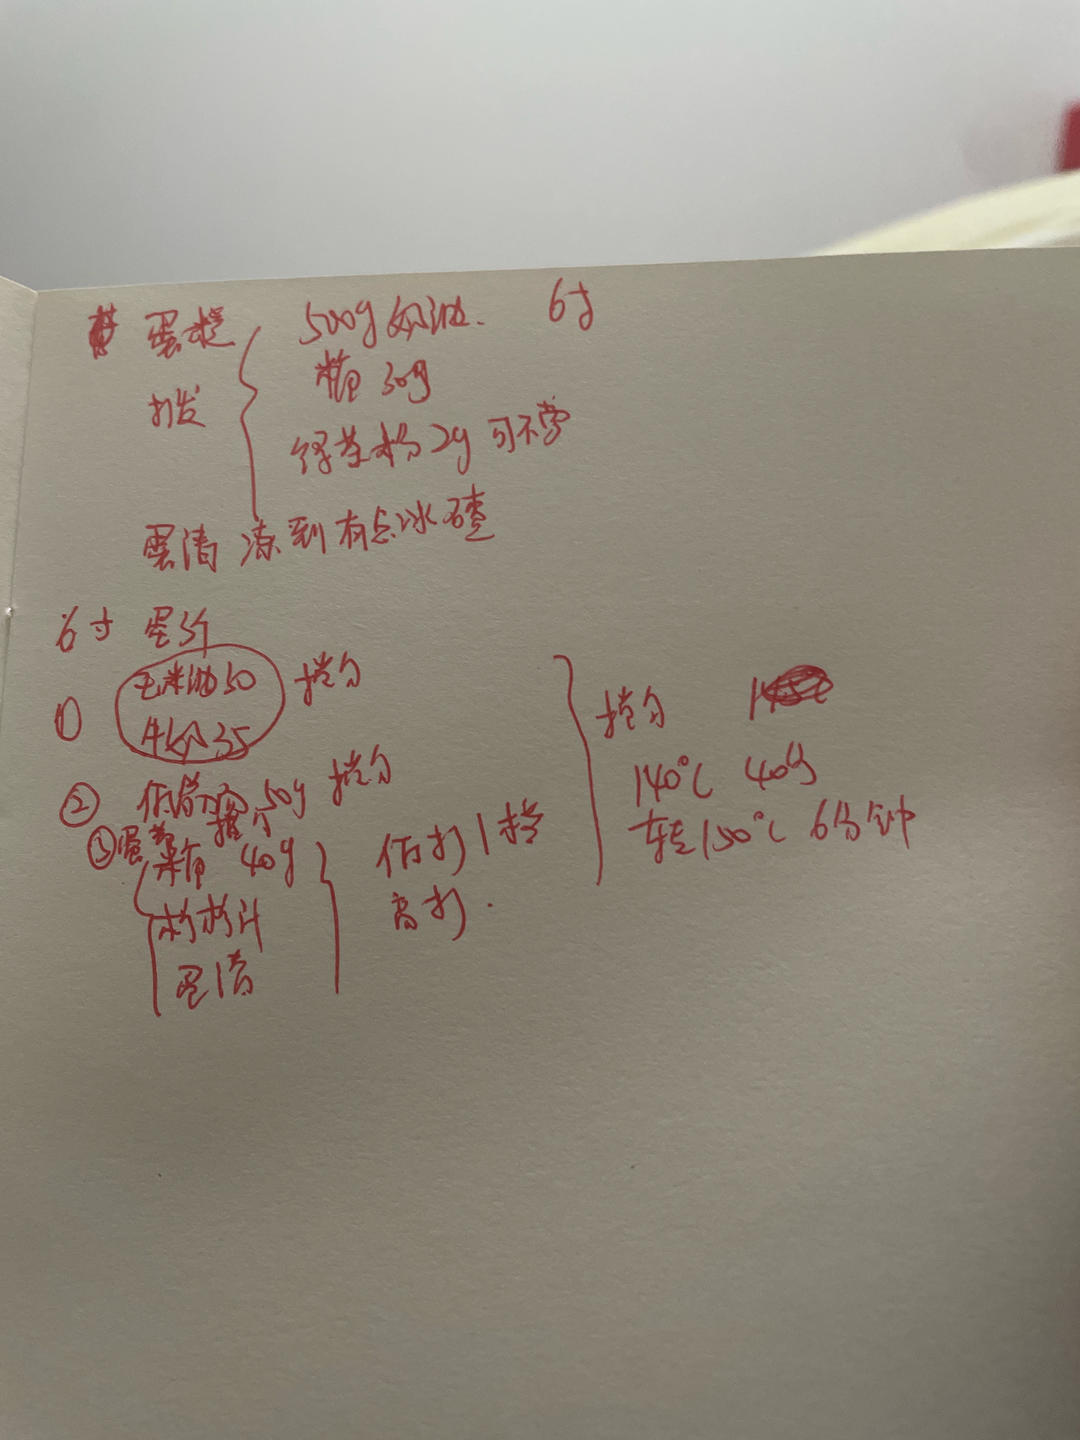 蛋糕 500g奶油. 6寸
打发 糖 30g
绿茶粉 2g 可不学
蛋清 冻到有点冰碴
6寸 蛋3个
① 玉米油50 搅匀
牛奶35
② 低筋 50g 搅匀
③ 蛋黄 搅匀
糖 40g
柠檬汁
蛋清
低打1档
高打.
搅匀
140℃ 40分
转150℃ 6分钟